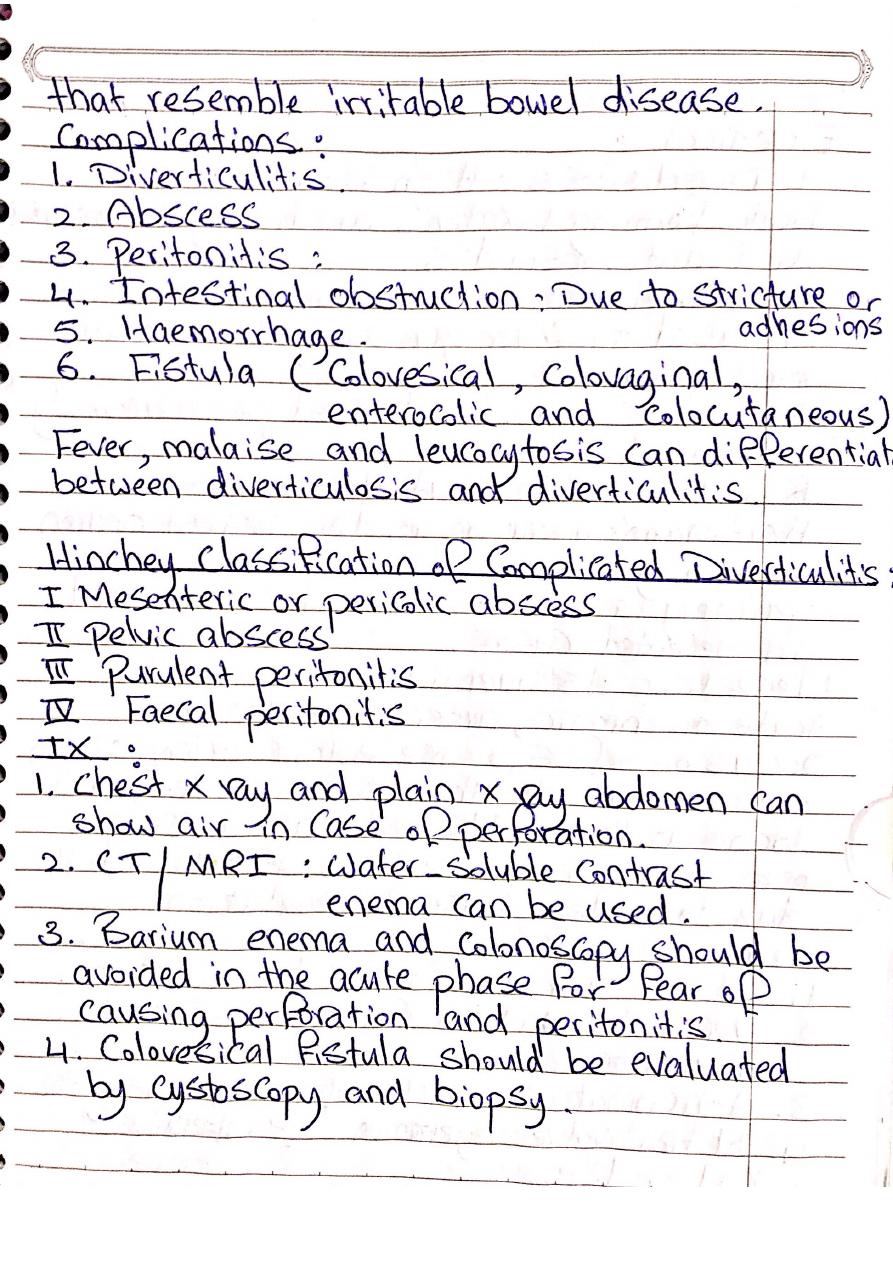 that resemble irritable bowel disease.
Complications :
1. Diverticulitis.
2. Abscess
3. Peritonitis :
4. Intestinal obstruction : Due to stricture or
adhesions
5. Haemorrhage.
6. Fistula ( Colovesical, Colovaginal,
enterocolic and Colocutaneous)
Fever, malaise and leucocytosis can differentiat
between diverticulosis and diverticulitis
Hinchey Classification of Complicated Diverticulitis :
I Mesenteric or pericolic abscess
II Pelvic abscess
III Purulent peritonitis
IV Faecal peritonitis
IX :
1. Chest x ray and plain x ray abdomen can
show air in Case of perforation.
2. CT/MRI : Water-Soluble Contrast
enema can be used.
3. Barium enema and Colonoscopy should be
avoided in the acute phase for fear of
causing perforation and peritonitis.
4. Colovesical fistula should be evaluated
by cystoscopy and biopsy.